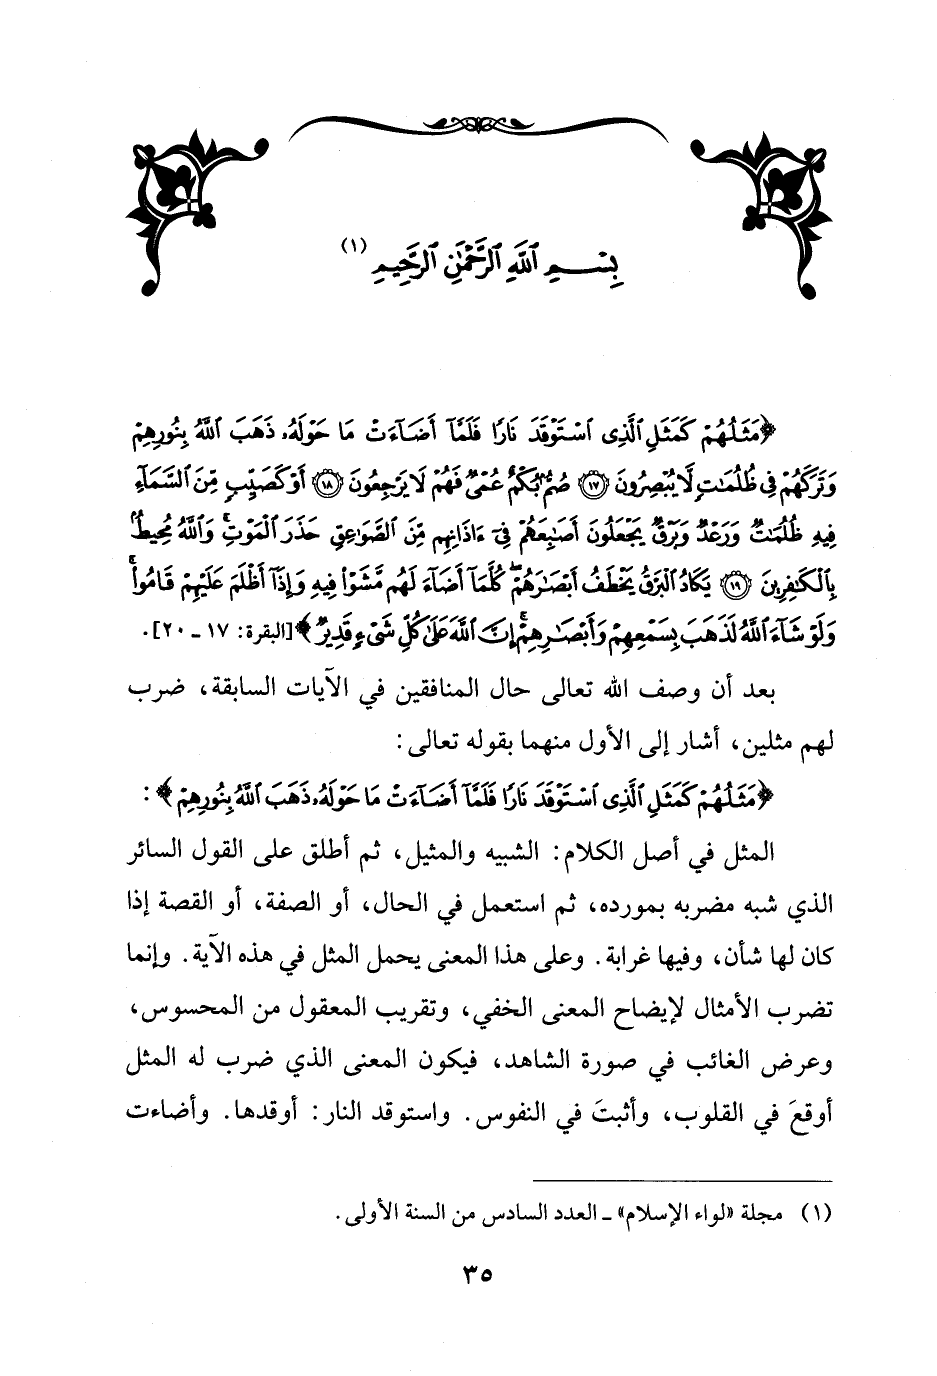 بِسْمِ ٱللَّهِ ٱلرَّحْمَٰنِ ٱلرَّحِيمِ (١)
﴿مَثَلُهُمْ كَمَثَلِ ٱلَّذِى ٱسْتَوْقَدَ نَارًا فَلَمَّآ أَضَآءَتْ مَا حَوْلَهُۥ ذَهَبَ ٱللَّهُ بِنُورِهِمْ
وَتَرَكَهُمْ فِى ظُلُمَٰتٍ لَّا يُبْصِرُونَ ١٧ صُمٌّۢ بُكْمٌ عُمْىٌ فَهُمْ لَا يَرْجِعُونَ ١٨ أَوْ كَصَيِّبٍ مِّنَ ٱلسَّمَآءِ
فِيهِ ظُلُمَٰتٌ وَرَعْدٌ وَبَرْقٌ يَجْعَلُونَ أَصَٰبِعَهُمْ فِىٓ ءَاذَانِهِم مِّنَ ٱلصَّوَٰعِقِ حَذَرَ ٱلْمَوْتِ ۚ وَٱللَّهُ مُحِيطٌۢ
بِٱلْكَٰفِرِينَ ١٩ يَكَادُ ٱلْبَرْقُ يَخْطَفُ أَبْصَٰرَهُمْ ۖ كُلَّمَآ أَضَآءَ لَهُم مَّشَوْا۟ فِيهِ وَإِذَآ أَظْلَمَ عَلَيْهِمْ قَامُوا۟ ۚ
وَلَوْ شَآءَ ٱللَّهُ لَذَهَبَ بِسَمْعِهِمْ وَأَبْصَٰرِهِمْ ۚ إِنَّ ٱللَّهَ عَلَىٰ كُلِّ شَىْءٍ قَدِيرٌ﴾ [البقرة: ١٧ ـ ٢٠].
بعد أن وصف الله تعالى حال المنافقين في الآيات السابقة، ضرب
لهم مثلين، أشار إلى الأول منهما بقوله تعالى:
﴿مَثَلُهُمْ كَمَثَلِ ٱلَّذِى ٱسْتَوْقَدَ نَارًا فَلَمَّآ أَضَآءَتْ مَا حَوْلَهُۥ ذَهَبَ ٱللَّهُ بِنُورِهِمْ﴾:
المثل في أصل الكلام: الشبيه والمثيل، ثم أطلق على القول السائر
الذي شبه مضربه بمورده، ثم استعمل في الحال، أو الصفة، أو القصة إذا
كان لها شأن، وفيها غرابة. وعلى هذا المعنى يحمل المثل في هذه الآية. وإنما
تضرب الأمثال لإيضاح المعنى الخفي، وتقريب المعقول من المحسوس،
وعرض الغائب في صورة الشاهد، فيكون المعنى الذي ضرب له المثل
أوقعَ في القلوب، وأثبتَ في النفوس. واستوقد النار: أوقدها. وأضاءت
(١) مجلة «لواء الإسلام» ـ العدد السادس من السنة الأولى.
٣٥